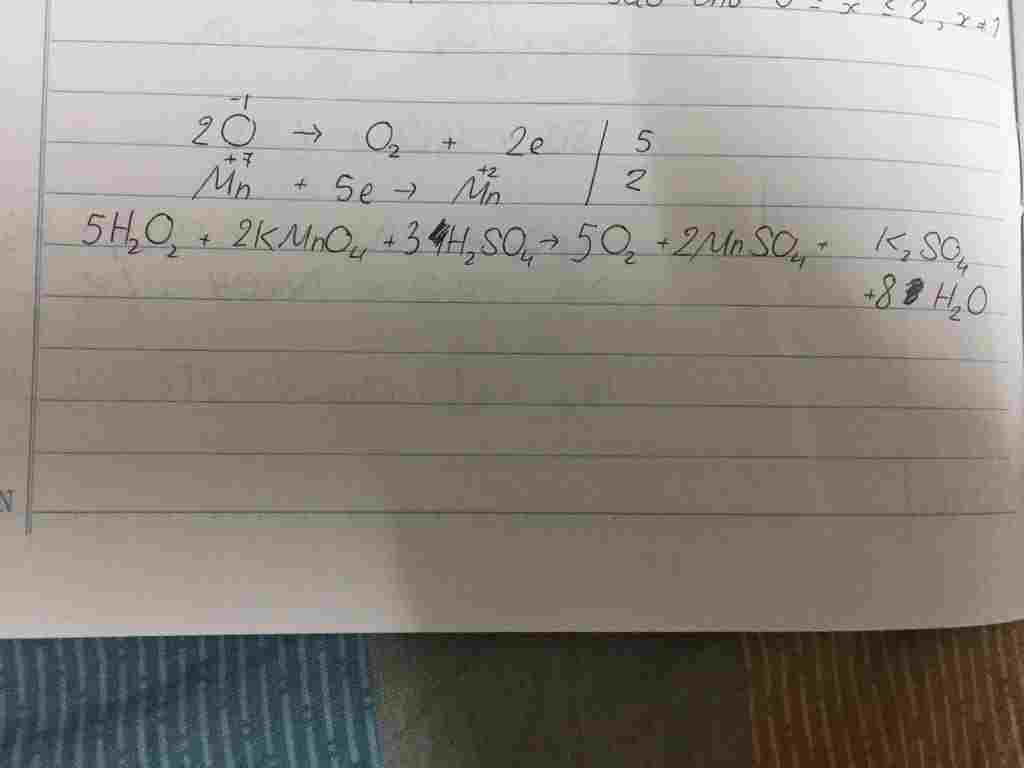 ≤ x ≤ 2, x ≠ 1
-1
2O → O₂ + 2e | 5
+7 +2
Mn + 5e → Mn | 2
5H₂O₂ + 2KMnO₄ + 3H₂SO₄ → 5O₂ + 2MnSO₄ + K₂SO₄
+ 8 H₂O
N